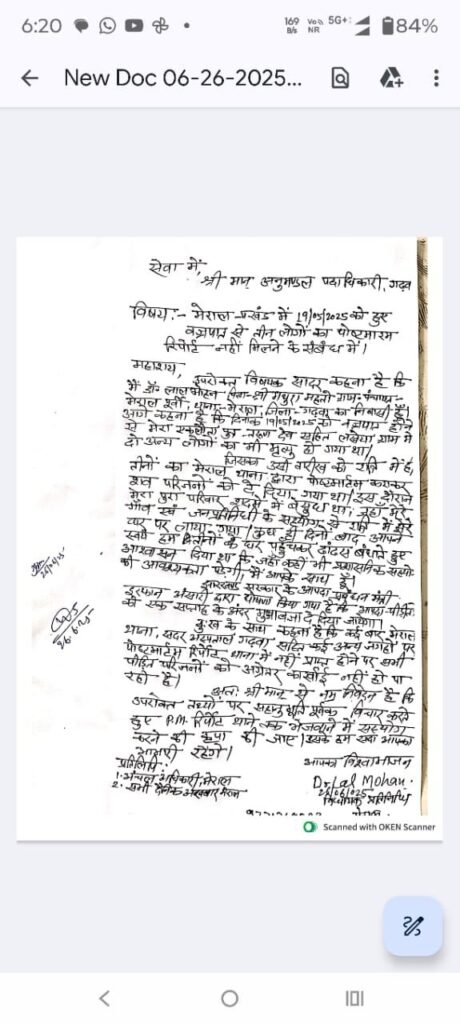 6:20
169 B/s
Vo) NR
5G+
84%
New Doc 06-26-2025...
सेवा में,
श्री मान् अनुमण्डल पदाधिकारी, गढ़वा
विषय:- मेराल प्रखंड में 19/05/2025 को हुए
वज्रपात से तीन लोगों का पोस्टमारम
रिपोर्ट नहीं मिलने के संबंध में।
महाशय,
उपरोक्त विषयक सादर कहना है कि
मैं डॉ० लाल मोहन पिता-श्री मथुरा महतो ग्राम-पंचायत-
मेराल, थाना-मेराल, जिला-गढ़वा का निवासी हूँ।
आगे कहना है कि दिनांक 19/05/2025 को वज्रपात होने
से मेरा पुत्र देव सहित ग्राम में
दो अन्य लोगों का भी मृत्यु हो गया था।
जिसका उसी तारीख को रात्रि में ही,
तीनों का मेराल थाना द्वारा पोस्टमार्टम कराकर
शव परिजनों को दे दिया गया था। इस दौरान
मेरा पुरा परिवार सदमें में बेसुध था, जहाँ मेरे
गाँव एवं जनप्रतिनिधी के सहयोग से रात्रि में मेरे
घर पर लाया गया। कुछ ही दिनों बाद आपने
स्वयं हम तीनों के घर पहुँचकर ढांढस बंधाते हुए
आश्वासन दिया था कि जहाँ कहीं भी प्रशासनिक सहयोग
की आवश्यकता पड़ेगी, मैं आपके साथ हूँ।
झारखण्ड सरकार के आपदा प्रबंधन मंत्री
इरफान अंसारी द्वारा घोषणा किया गया है कि
को एक सप्ताह के अंदर मुआवजा दे दिया जायेगा।
दुःख के साथ कहना है कि कई बार मेराल
थाना, सदर अस्पताल गढ़वा सहित कई अन्य जगहों पर
पोस्टमार्टम रिपोर्ट थाना में नहीं प्राप्त होने पर सभी
पीड़ित परिजनों को अग्रेतर कार्रवाई नहीं हो पा
रहा है।
अतः श्री मान् से नम्र निवेदन है कि
उपरोक्त तथ्यों पर सहानुभूति पूर्वक विचार करते
हुए P.M. रिपोर्ट थाने तक भेजवाने में सहयोग
करने की कृपा की जाए। इसके हम सदा आपका
आभारी रहेंगे।
प्रतिलिपि:-
1. अंचल अधिकारी, मेराल
2. सभी दैनिक अखबार मेराल
आपका विश्वासभाजन
Dr. Lal Mohan
26/06/025
विधायक प्रतिनिधि
Scanned with OKEN Scanner